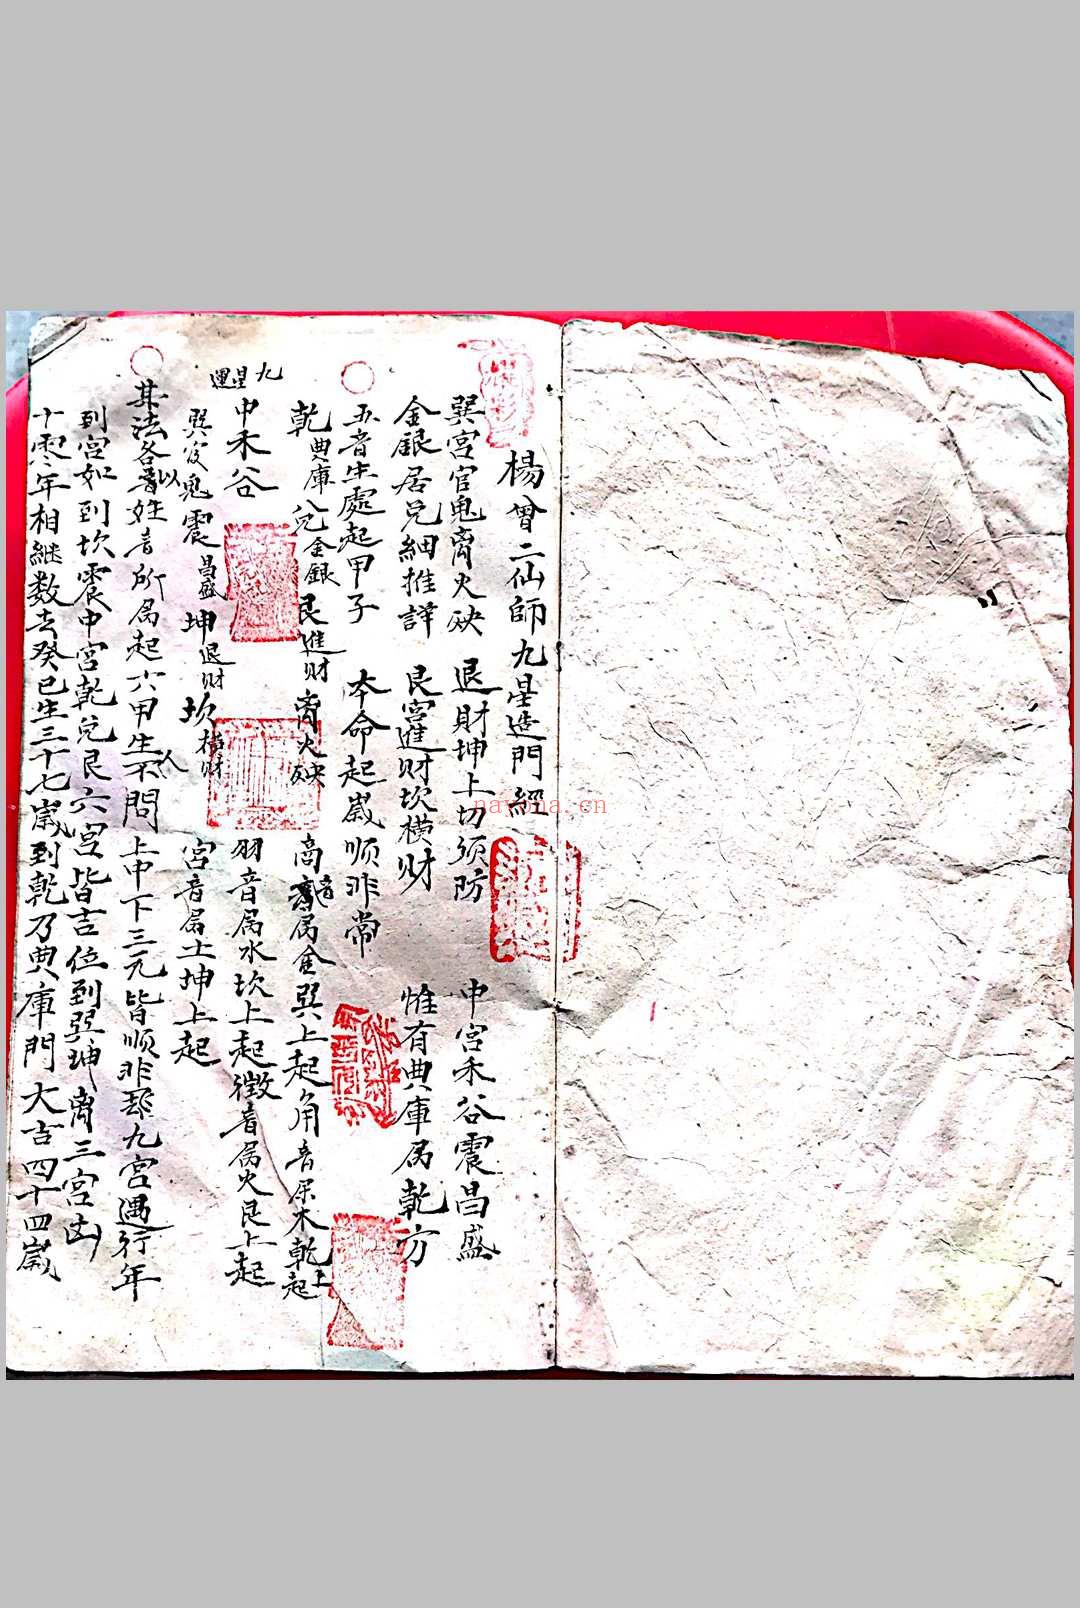 楊曾二仙師九星造門經
巽宮官鬼离火殃 退財坤上切须防 中宮禾谷震昌盛
金銀居兑細推詳 艮宮進财坎横财 惟有典庫属乾方
五音生處起甲子 本命起歲順非常
乾典庫 兑金銀 艮進财 离火殃 商音属金巽上起角音属木乾上起
九星運
中禾谷 羽音属水坎上起徵音属火艮上起
巽官鬼 震昌盛 坤退财 坎横财 宮音属土坤上起
其法各以音姓音所属起六甲生人不問上中下三元皆順非却九宮遇行年
到宮如到坎震中宮乾兑艮六宮皆吉位到巽坤离三宮凶
十零年相継数去癸巳生三十七歲到乾乃典庫門大吉四十四歲
nayona.cn